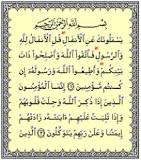 بِسْمِ ٱللَّهِ ٱلرَّحْمَٰنِ ٱلرَّحِيمِ
يَسْـَٔلُونَكَ عَنِ ٱلْأَنفَالِ قُلِ ٱلْأَنفَالُ لِلَّهِ
وَٱلرَّسُولِ فَٱتَّقُوا۟ ٱللَّهَ وَأَصْلِحُوا۟ ذَاتَ
بَيْنِكُمْ وَأَطِيعُوا۟ ٱللَّهَ وَرَسُولَهُۥٓ إِن
كُنتُم مُّؤْمِنِينَ ١ إِنَّمَا ٱلْمُؤْمِنُونَ
ٱلَّذِينَ إِذَا ذُكِرَ ٱللَّهُ وَجِلَتْ قُلُوبُهُمْ
وَإِذَا تُلِيَتْ عَلَيْهِمْ ءَايَٰتُهُۥ زَادَتْهُمْ
إِيمَٰنًا وَعَلَىٰ رَبِّهِمْ يَتَوَكَّلُونَ ٢